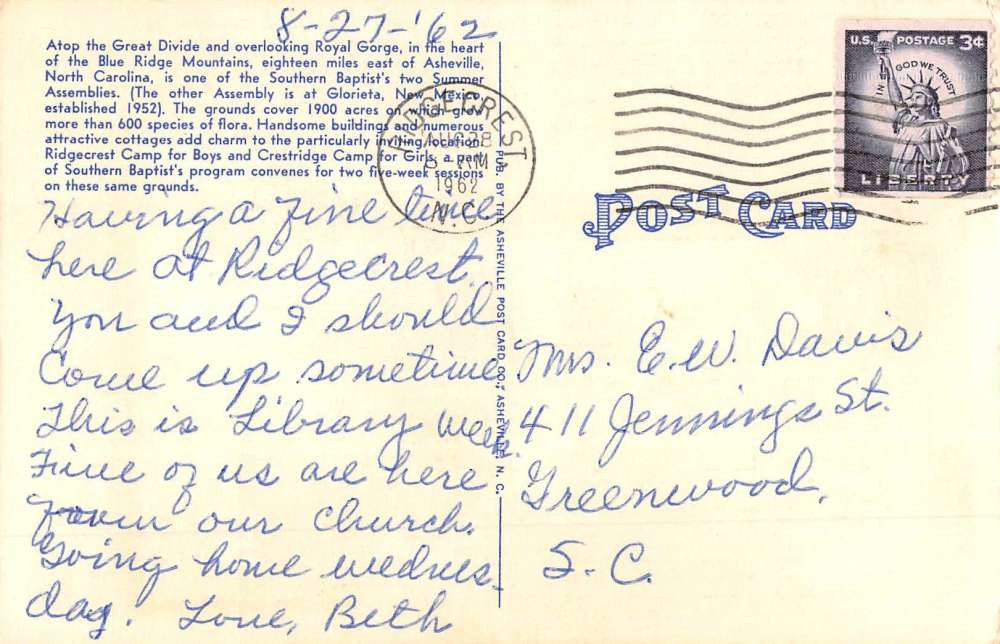 8-27-'62
Atop the Great Divide and overlooking Royal Gorge, in the heart
of the Blue Ridge Mountains, eighteen miles east of Asheville,
North Carolina, is one of the Southern Baptist's two Summer
Assemblies. (The other Assembly is at Glorieta, New Mexico,
established 1952). The grounds cover 1900 acres on which grow
more than 600 species of flora. Handsome buildings and numerous
attractive cottages add charm to the particularly inviting location.
Ridgecrest Camp for Boys and Crestridge Camp for Girls, a part
of Southern Baptist's program convenes for two five-week sessions
on these same grounds.
Having a fine time
here at Ridgecrest.
You and I should
Come up sometime
This is Library week.
Five of us are here
from our church.
Going home wednes-
day. Love, Beth
PUB. BY THE ASHEVILLE POST CARD CO., ASHEVILLE, N. C.
RIDGECREST
AUG 28
PM
1962
N.C.
U.S. POSTAGE 3¢
IN GOD WE TRUST
LIBERTY
POST CARD
Mrs. E.W. Davis
411 Jennings St.
Greenwood,
S.C.